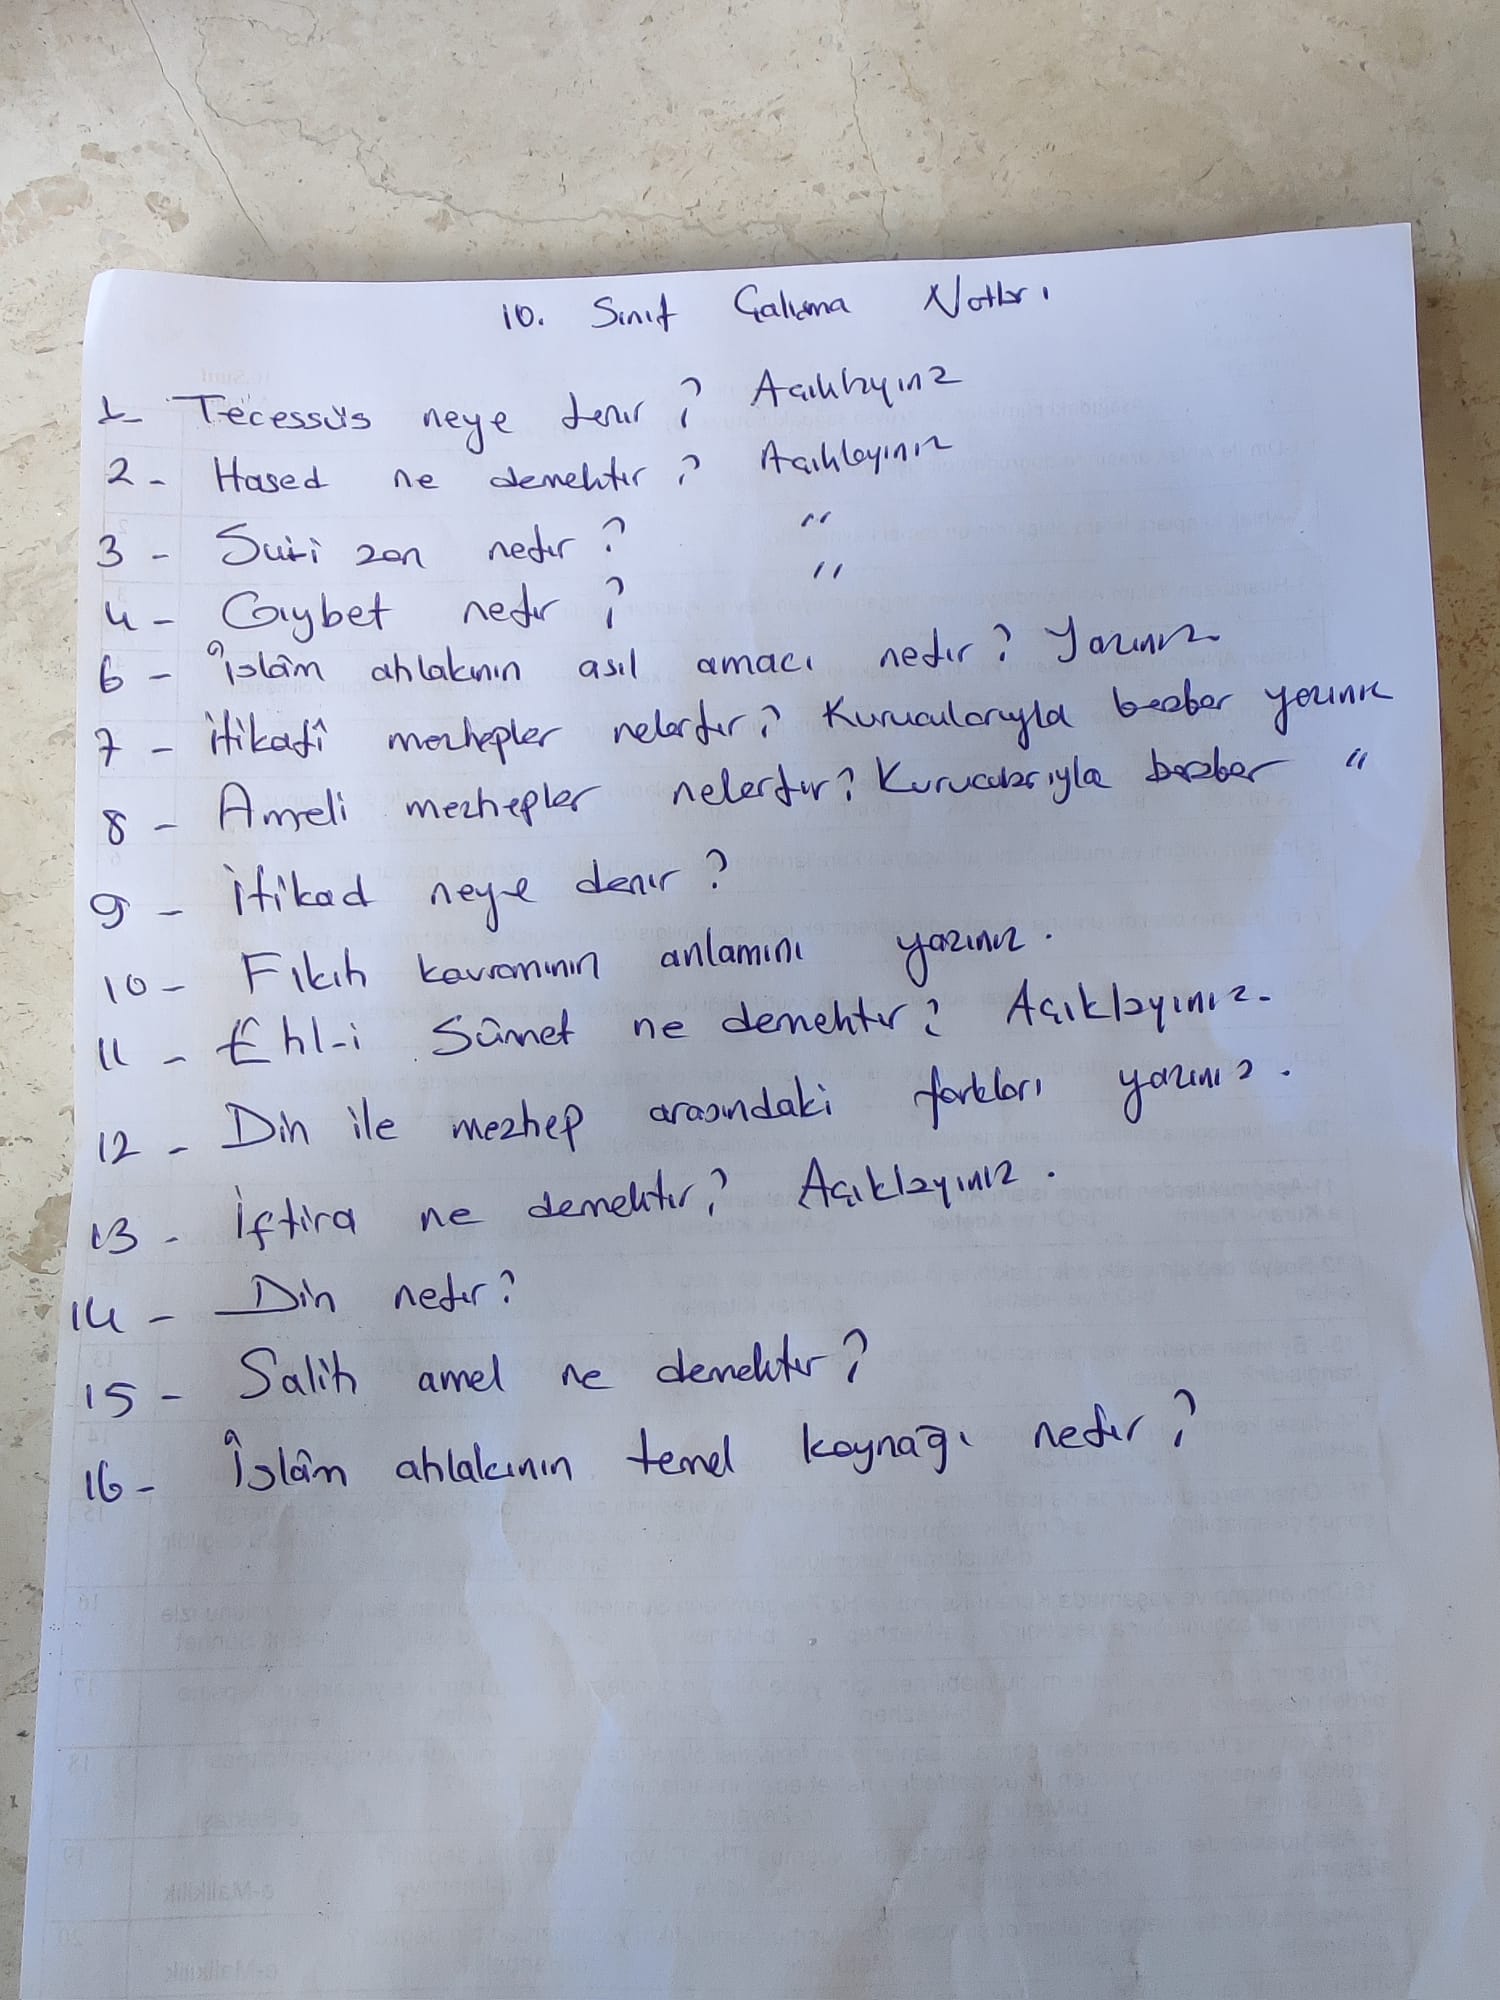 10. Sınıf Çalışma Notları
1- Tecessüs neye denir? Açıklayınız
2- Hased ne demektir? Açıklayınız
3- Sui zan nedir? "
4- Gıybet nedir? "
6- İslâm ahlakının asıl amacı nedir? Yazınız
7- İtikatî mezhepler nelerdir? Kurucularıyla beraber yazınız
8- Ameli mezhepler nelerdir? Kurucularıyla beraber "
9- İtikad neye denir?
10- Fıkıh kavramının anlamını yazınız.
11- Ehl-i Sünnet ne demektir? Açıklayınız.
12- Din ile mezhep arasındaki farkları yazınız.
13- İftira ne demektir? Açıklayınız.
14- Din nedir?
15- Salih amel ne demektir?
16- İslâm ahlakının temel kaynağı nedir?